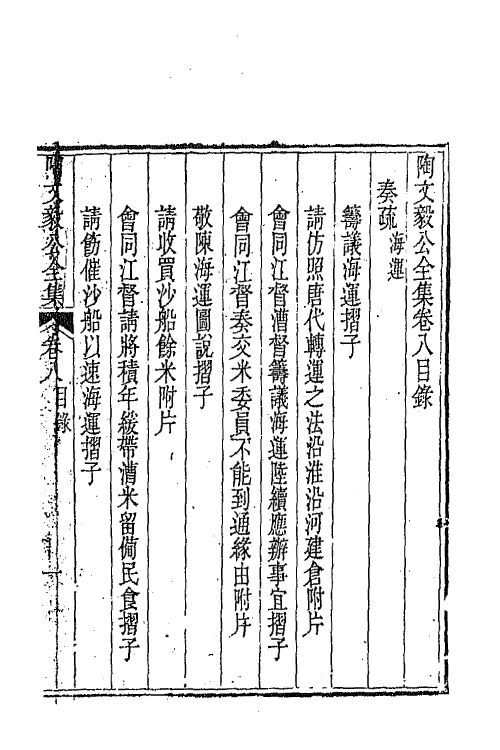 陶文毅公全集卷八目錄
奏疏 海運
籌議海運摺子
請仿照唐代轉運之法沿淮沿河建倉附片
會同江督漕督籌議海運陸續應辦事宜摺子
會同江督奏交米委員不能到通緣由附片
敬陳海運圖說摺子
請收買沙船餘米附片
會同江督請將積年緩帶漕米留備民食摺子
請飭催沙船以速海運摺子
陶文毅公全集 卷八目錄 一